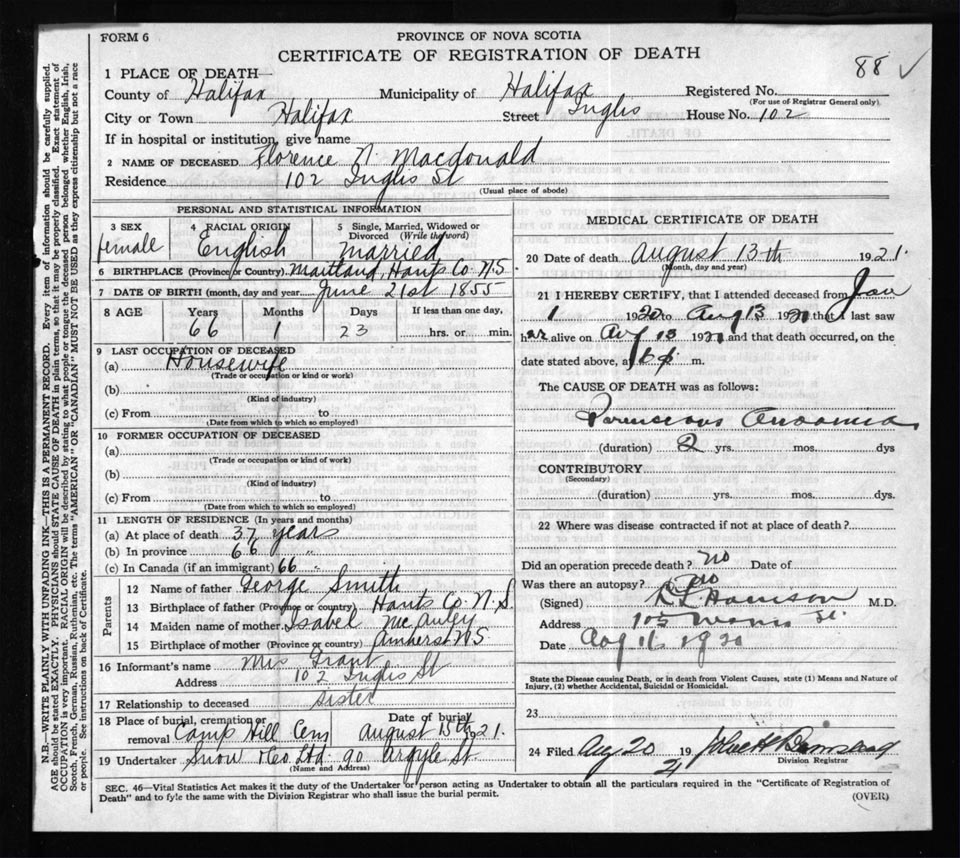 FORM 6
PROVINCE OF NOVA SCOTIA
CERTIFICATE OF REGISTRATION OF DEATH
88 ✓
1 PLACE OF DEATH—
County of Halifax Municipality of Halifax Registered No.
(For use of Registrar General only).
City or Town Halifax Street Inglis House No. 102
If in hospital or institution, give name
2 NAME OF DECEASED Florence N. Macdonald
Residence 102 Inglis St
(Usual place of abode)
PERSONAL AND STATISTICAL INFORMATION
3 SEX female
4 RACIAL ORIGIN English
5 Single, Married, Widowed or Divorced (Write the word) Married
6 BIRTHPLACE (Province or Country) Maitland, Hants Co. N.S.
7 DATE OF BIRTH (month, day and year) June 21st 1855
8 AGE Years 66 Months 1 Days 23 If less than one day, hrs. or min.
9 LAST OCCUPATION OF DECEASED
(a) Housewife
(Trade or occupation or kind or work)
(b)
(Kind of industry)
(c) From to
(Date from which to which so employed)
10 FORMER OCCUPATION OF DECEASED
(a)
(Trade or occupation or kind of work)
(b)
(Kind of industry)
(c) From to
(Date from which to which so employed)
11 LENGTH OF RESIDENCE (In years and months)
(a) At place of death 37 years
(b) In province 66 "
(c) In Canada (if an immigrant) 66 "
Parents
12 Name of father George Smith
13 Birthplace of father (Province or country) Hants Co. N.S.
14 Maiden name of mother Isabel McAuley
15 Birthplace of mother (Province or country) Amherst N.S.
16 Informant's name Mrs Grant
Address 102 Inglis St
17 Relationship to deceased sister
18 Place of burial, cremation or removal Camp Hill Cem Date of burial August 15th 1921.
19 Undertaker Snow & Co Ltd 90 Argyle St.
(Name and Address)
MEDICAL CERTIFICATE OF DEATH
20 Date of death August 13th 1921.
(Month, day and year)
21 I HEREBY CERTIFY, that I attended deceased from Jan
1 1920 to Aug 13 1921 that I last saw
her alive on Aug 13 1921 and that death occurred, on the
date stated above, at 6 m.
The CAUSE OF DEATH was as follows:
(duration) 2 yrs. mos. dys
CONTRIBUTORY
(Secondary)
(duration) yrs. mos. dys.
22 Where was disease contracted if not at place of death?
Did an operation precede death? no Date of
Was there an autopsy? no
(Signed) M.D.
Address St.
Date Aug 16 1920
State the Disease causing Death, or in death from Violent Causes, state (1) Means and Nature of Injury, (2) whether Accidental, Suicidal or Homicidal.
23
24 Filed Aug 20 19 21
Division Registrar
SEC. 46—Vital Statistics Act makes it the duty of the Undertaker or person acting as Undertaker to obtain all the particulars required in the "Certificate of Registration of
Death" and to fyle the same with the Division Registrar who shall issue the burial permit.
(OVER)
N.B.—WRITE PLAINLY WITH UNFADING INK—THIS IS A PERMANENT RECORD. Every item of information should be carefully supplied.
AGE should be stated EXACTLY. PHYSICIANS should STATE CAUSE OF DEATH in plain terms, so that it may be properly classified. Exact statement of
OCCUPATION is very important. RACIAL ORIGIN will be described by stating to what people or tongue the deceased person belonged whether English, Irish,
Scotch, French, German, Russian, Ruthenian, etc. The terms "AMERICAN" or "CANADIAN" MUST NOT BE USED as they express citizenship but not a race
or people. See instructions on back of Certificate.